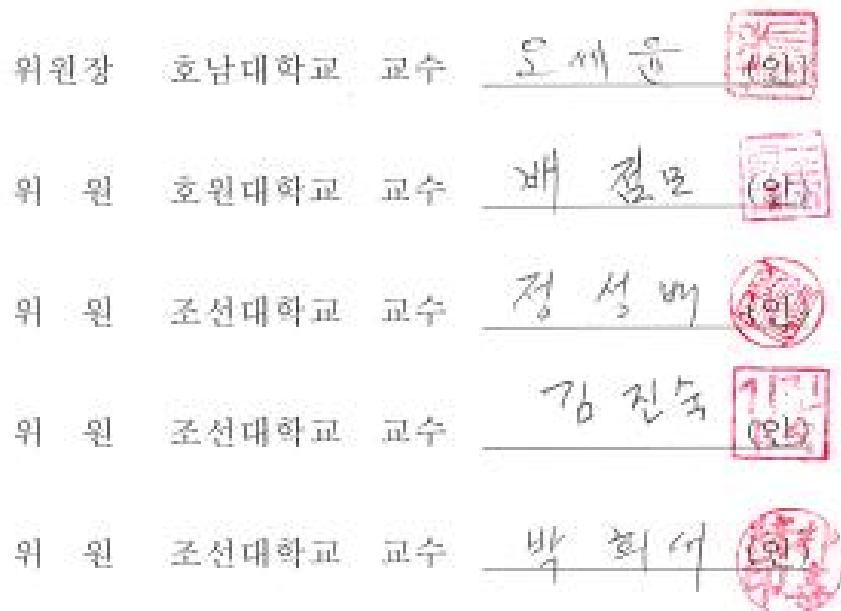 위원장 호남대학교 교수 오세윤 (인)
위 원 호원대학교 교수 배점모 (인)
위 원 조선대학교 교수 정성배 (인)
위 원 조선대학교 교수 김진숙 (인)
위 원 조선대학교 교수 박희서 (인)